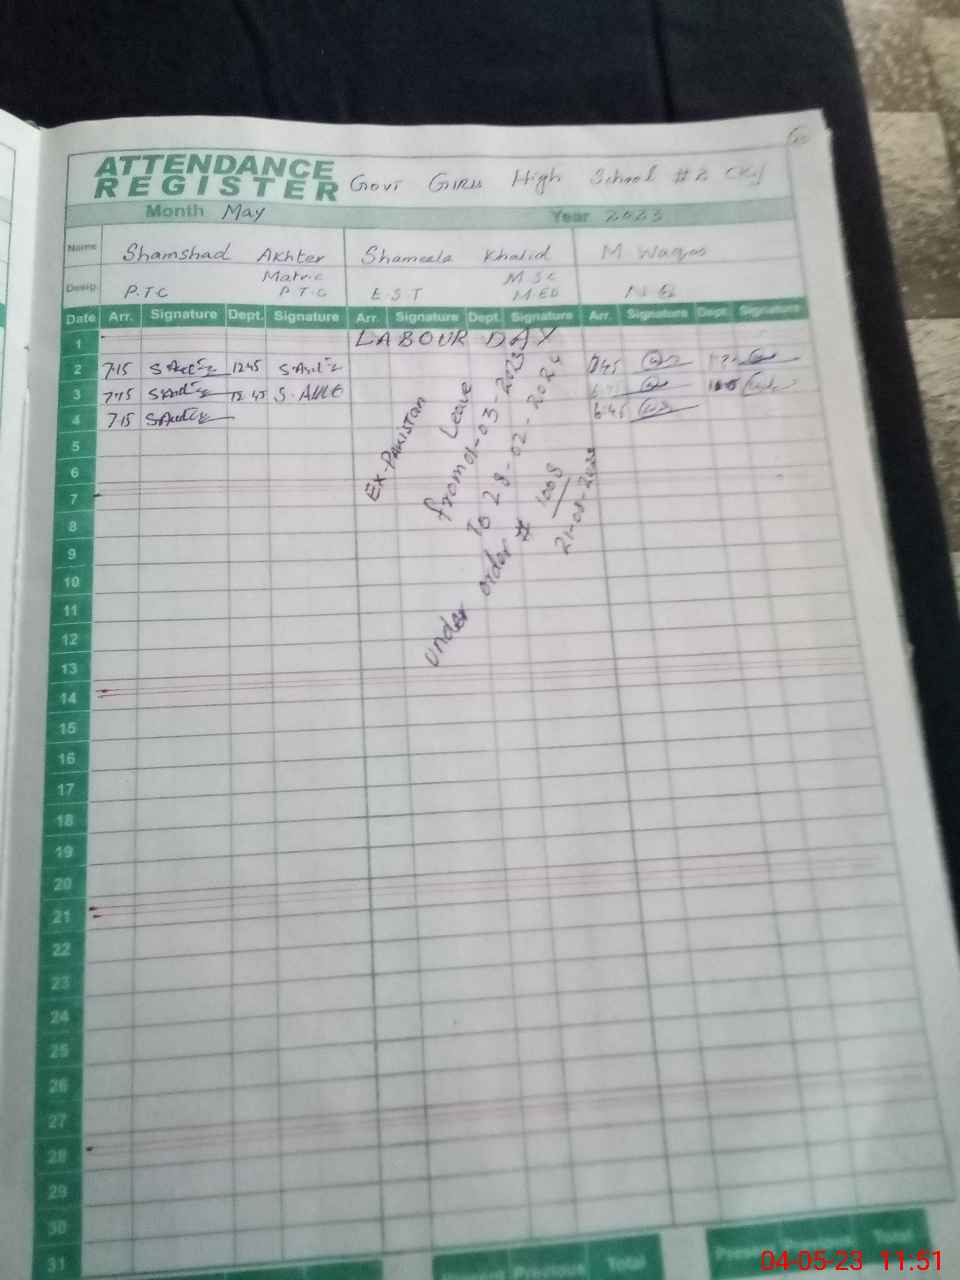 ATTENDANCE
REGISTER
Govt Girls High School # 2
Month May Year 2023
Name Shamshad Akhter Shameela Khalid M Waqas
Desig. P.T.C Matric P.T.C E.S.T M SC M.ED
Date Arr. Signature Dept. Signature Arr. Signature Dept. Signature Arr. Signature Dept. Signature
1 LABOUR DAY
2 7:15 1245
3 7:15 12 45
4 7:15 6:45
5
6
7
8
9
10
11
12
13
14
15
16
17
18
19
20
21
22
23
24
25
26
27
28
29
30
31
Ex-Pakistan
Leave
from 01-03-2023
To 28-02-2024
under order #
Total
Present Previous Total
04-05-23 11:51